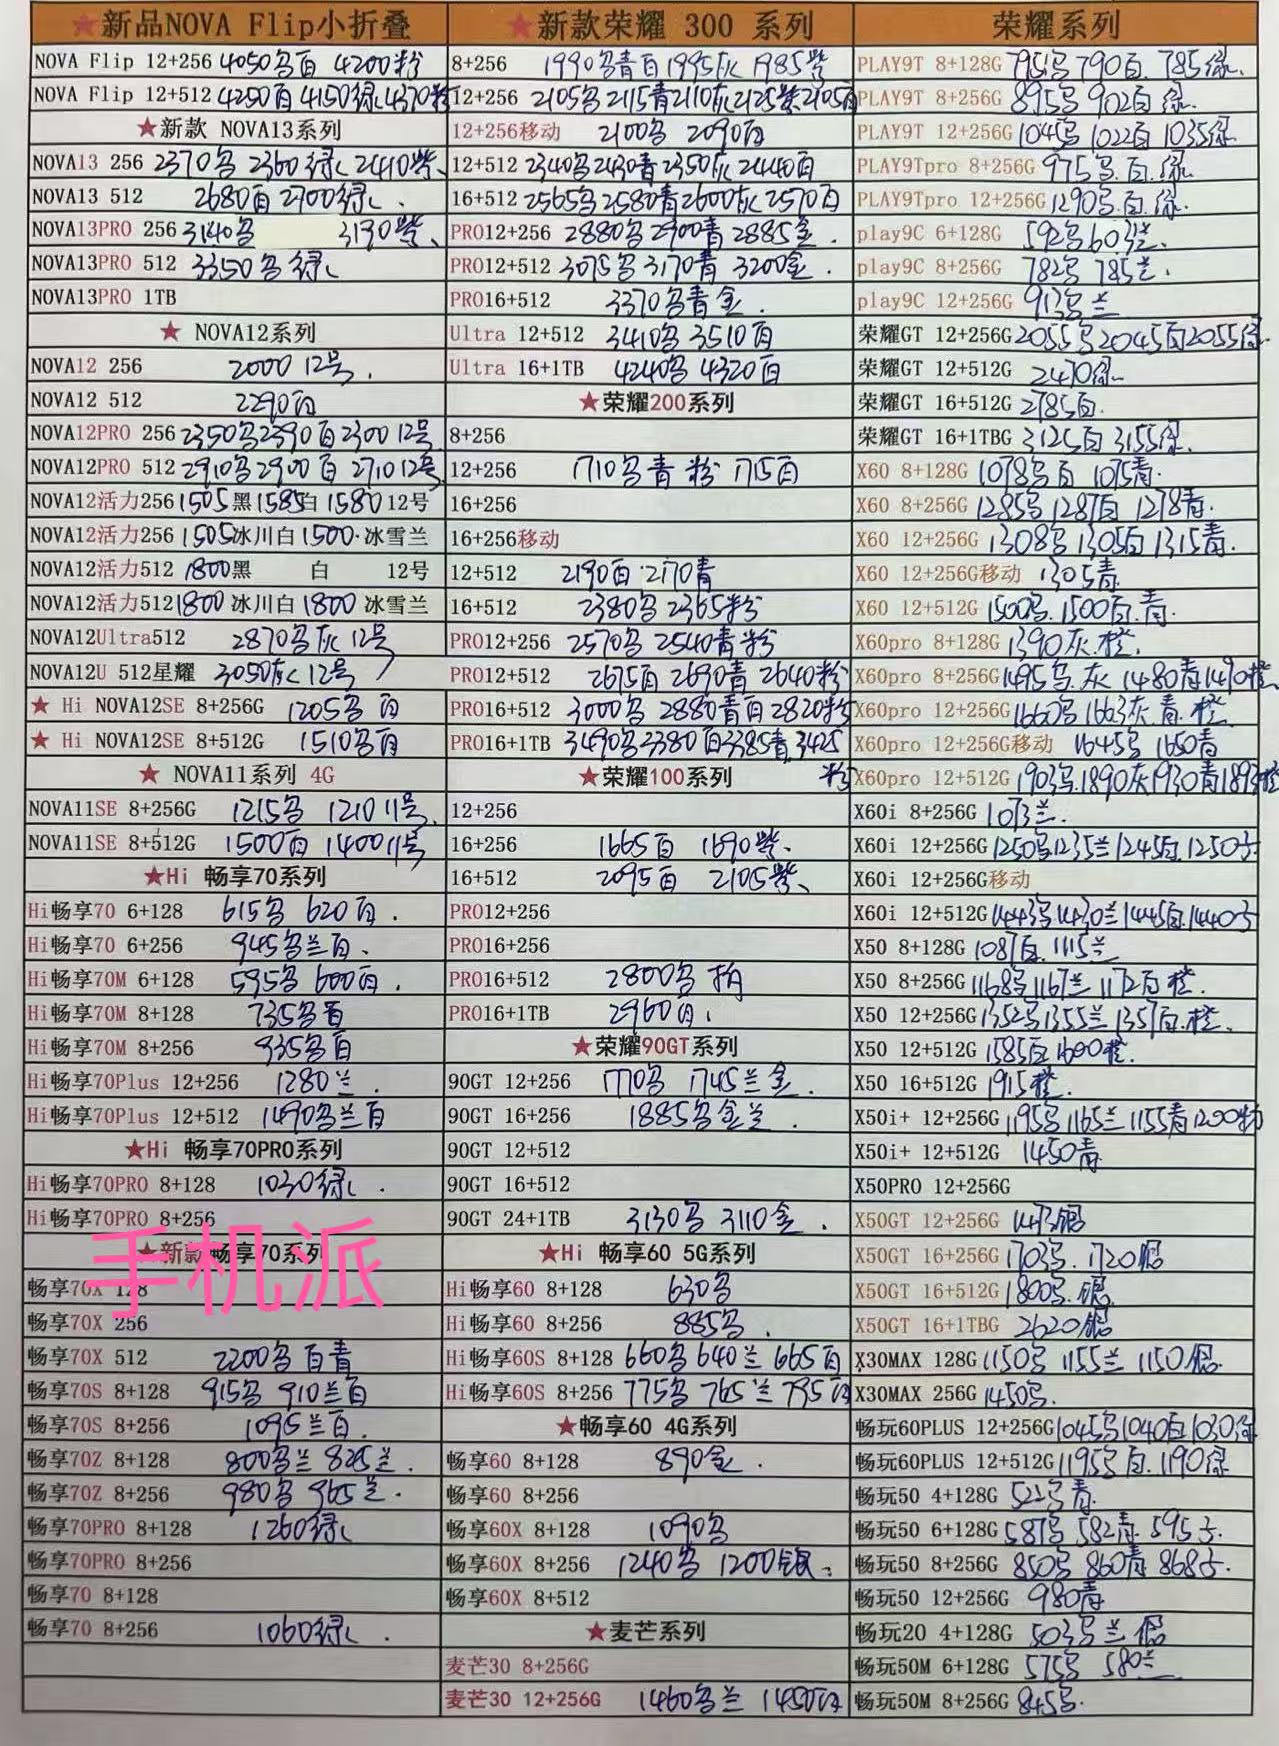 ★新品NOVA Flip小折叠
NOVA Flip 12+256 4050乌白 4200粉
NOVA Flip 12+512 4250白 4150绿 4370粉
★新款 NOVA13系列
NOVA13 256 2370乌 2360绿 2410紫、
NOVA13 512 2680白 2700绿、
NOVA13PRO 256 3140乌 3190紫、
NOVA13PRO 512 3350乌 绿
NOVA13PRO 1TB
★ NOVA12系列
NOVA12 256 2000 12号.
NOVA12 512 2290白
NOVA12PRO 256 2350乌2390白2300 12号
NOVA12PRO 512 2910乌2900白 2710 12号
NOVA12活力256 1505黑1585白 1580 12号
NOVA12活力256 1505冰川白 1500·冰雪兰
NOVA12活力512 1800黑 白 12号
NOVA12活力512 1800冰川白 1800 冰雪兰
NOVA12Ultra512 2870乌灰 12号
NOVA12U 512星耀 3050灰 12号
★ Hi NOVA12SE 8+256G 1205乌 白
★ Hi NOVA12SE 8+512G 1510乌白
★ NOVA11系列 4G
NOVA11SE 8+256G 1215乌 1210 11号.
NOVA11SE 8+512G 1500白 1400 11号
★Hi 畅享70系列
Hi畅享70 6+128 615乌 620白.
Hi畅享70 6+256 945乌兰白、
Hi畅享70M 6+128 595乌 600白.
Hi畅享70M 8+128 735乌白
Hi畅享70M 8+256 935乌白
Hi畅享70Plus 12+256 1280兰.
Hi畅享70Plus 12+512 1490乌兰白
★Hi 畅享70PRO系列
Hi畅享70PRO 8+128 1030绿.
Hi畅享70PRO 8+256
★新款畅享70系列
手机派
畅享70X 128
畅享70X 256
畅享70X 512 2200乌白青
畅享70S 8+128 915乌 910兰白
畅享70S 8+256 1095兰白.
畅享70Z 8+128 800乌兰 825兰.
畅享70Z 8+256 980乌 965兰.
畅享70PRO 8+128 1260绿
畅享70PRO 8+256
畅享70 8+128
畅享70 8+256 1060绿.
★新款荣耀 300 系列
8+256 1990乌青白1995灰 1985紫
12+256 2105乌2115青2110灰2125紫2105白
12+256移动 2100乌 2090白
12+512 2340乌2430青2350灰2440白
16+512 2565乌2580青2600灰2570白
PRO12+256 2880乌2900青2885金.
PRO12+512 3075乌3170青 3200金.
PRO16+512 3370乌青金.
Ultra 12+512 3410乌3510白
Ultra 16+1TB 4240乌4320白
★荣耀200系列
8+256
12+256 1710乌青 粉 1715白
16+256
16+256移动
12+512 2190白·2170青
16+512 2380乌2365粉
PRO12+256 2570乌 2540青粉
PRO12+512 2675白2690青2640粉
PRO16+512 3000乌 2880青白2820粉
PRO16+1TB 3490乌3380白3385青3425粉
★荣耀100系列
12+256
16+256 1665白 1690紫、
16+512 2095白 2105紫、
PRO12+256
PRO16+256
PRO16+512 2800乌
PRO16+1TB 2960白.
★荣耀90GT系列
90GT 12+256 1770乌 1745兰金.
90GT 16+256 1885乌金兰.
90GT 12+512
90GT 16+512
90GT 24+1TB 3130乌 3110金.
★Hi 畅享60 5G系列
Hi畅享60 8+128 630乌
Hi畅享60 8+256 885乌.
Hi畅享60S 8+128 660乌640兰665白
Hi畅享60S 8+256 775乌765兰795白
★畅享60 4G系列
畅享60 8+128 890金.
畅享60 8+256
畅享60X 8+128 1090乌
畅享60X 8+256 1240乌 1200银、
畅享60X 8+512
★麦芒系列
麦芒30 8+256G
麦芒30 12+256G 1460乌兰 1450白
荣耀系列
PLAY9T 8+128G 795乌790白.785绿.
PLAY9T 8+256G 895乌902白.绿.
PLAY9T 12+256G 1045乌1022白1035绿
PLAY9Tpro 8+256G 975乌.白.绿
PLAY9Tpro 12+256G 1290乌.白.绿.
play9C 6+128G 592乌603兰.
play9C 8+256G 782乌 785兰.
play9C 12+256G 913乌兰
荣耀GT 12+256G 2055乌2045白2055绿.
荣耀GT 12+512G 2470绿.
荣耀GT 16+512G 2785白.
荣耀GT 16+1TBG 3125白3155绿.
X60 8+128G 1078乌白 1075青.
X60 8+256G 1285乌1287白 1278青.
X60 12+256G 1308乌1305白1315青.
X60 12+256G移动 1305青
X60 12+512G 1500乌.1500白.青.
X60pro 8+128G 1390灰.橙.
X60pro 8+256G 1495乌.灰 1480青1490橙、
X60pro 12+256G 1660乌1663灰.青.橙
X60pro 12+256G移动 1645乌 1650青
X60pro 12+512G 1903乌.1890灰1930青1893橙
X60i 8+256G 1073兰.
X60i 12+256G 1250乌1235兰1245白.1250紫
X60i 12+256G移动
X60i 12+512G 1443乌1430兰1445白.1440紫
X50 8+128G 1087白.1115兰
X50 8+256G 1168乌1167兰 1172白 橙.
X50 12+256G 1352乌1355兰1357白.橙.
X50 12+512G 1585白1600橙.
X50 16+512G 1915橙.
X50i+ 12+256G 1195乌1165兰1155青1200粉
X50i+ 12+512G 1450青.
X50PRO 12+256G
X50GT 12+256G 1473银
X50GT 16+256G 1703乌.1720银
X50GT 16+512G 1800乌.银.
X50GT 16+1TBG 2620银
X30MAX 128G 1150乌 1155兰 1150银.
X30MAX 256G 1450乌.
畅玩60PLUS 12+256G 1045乌1040白1030绿
畅玩60PLUS 12+512G 1195乌白.1190绿
畅玩50 4+128G 522乌青.
畅玩50 6+128G 587乌 582青.595紫.
畅玩50 8+256G 850乌 860青 868紫.
畅玩50 12+256G 980青.
畅玩20 4+128G 503乌兰 银
畅玩50M 6+128G 575乌 580兰
畅玩50M 8+256G 845乌.